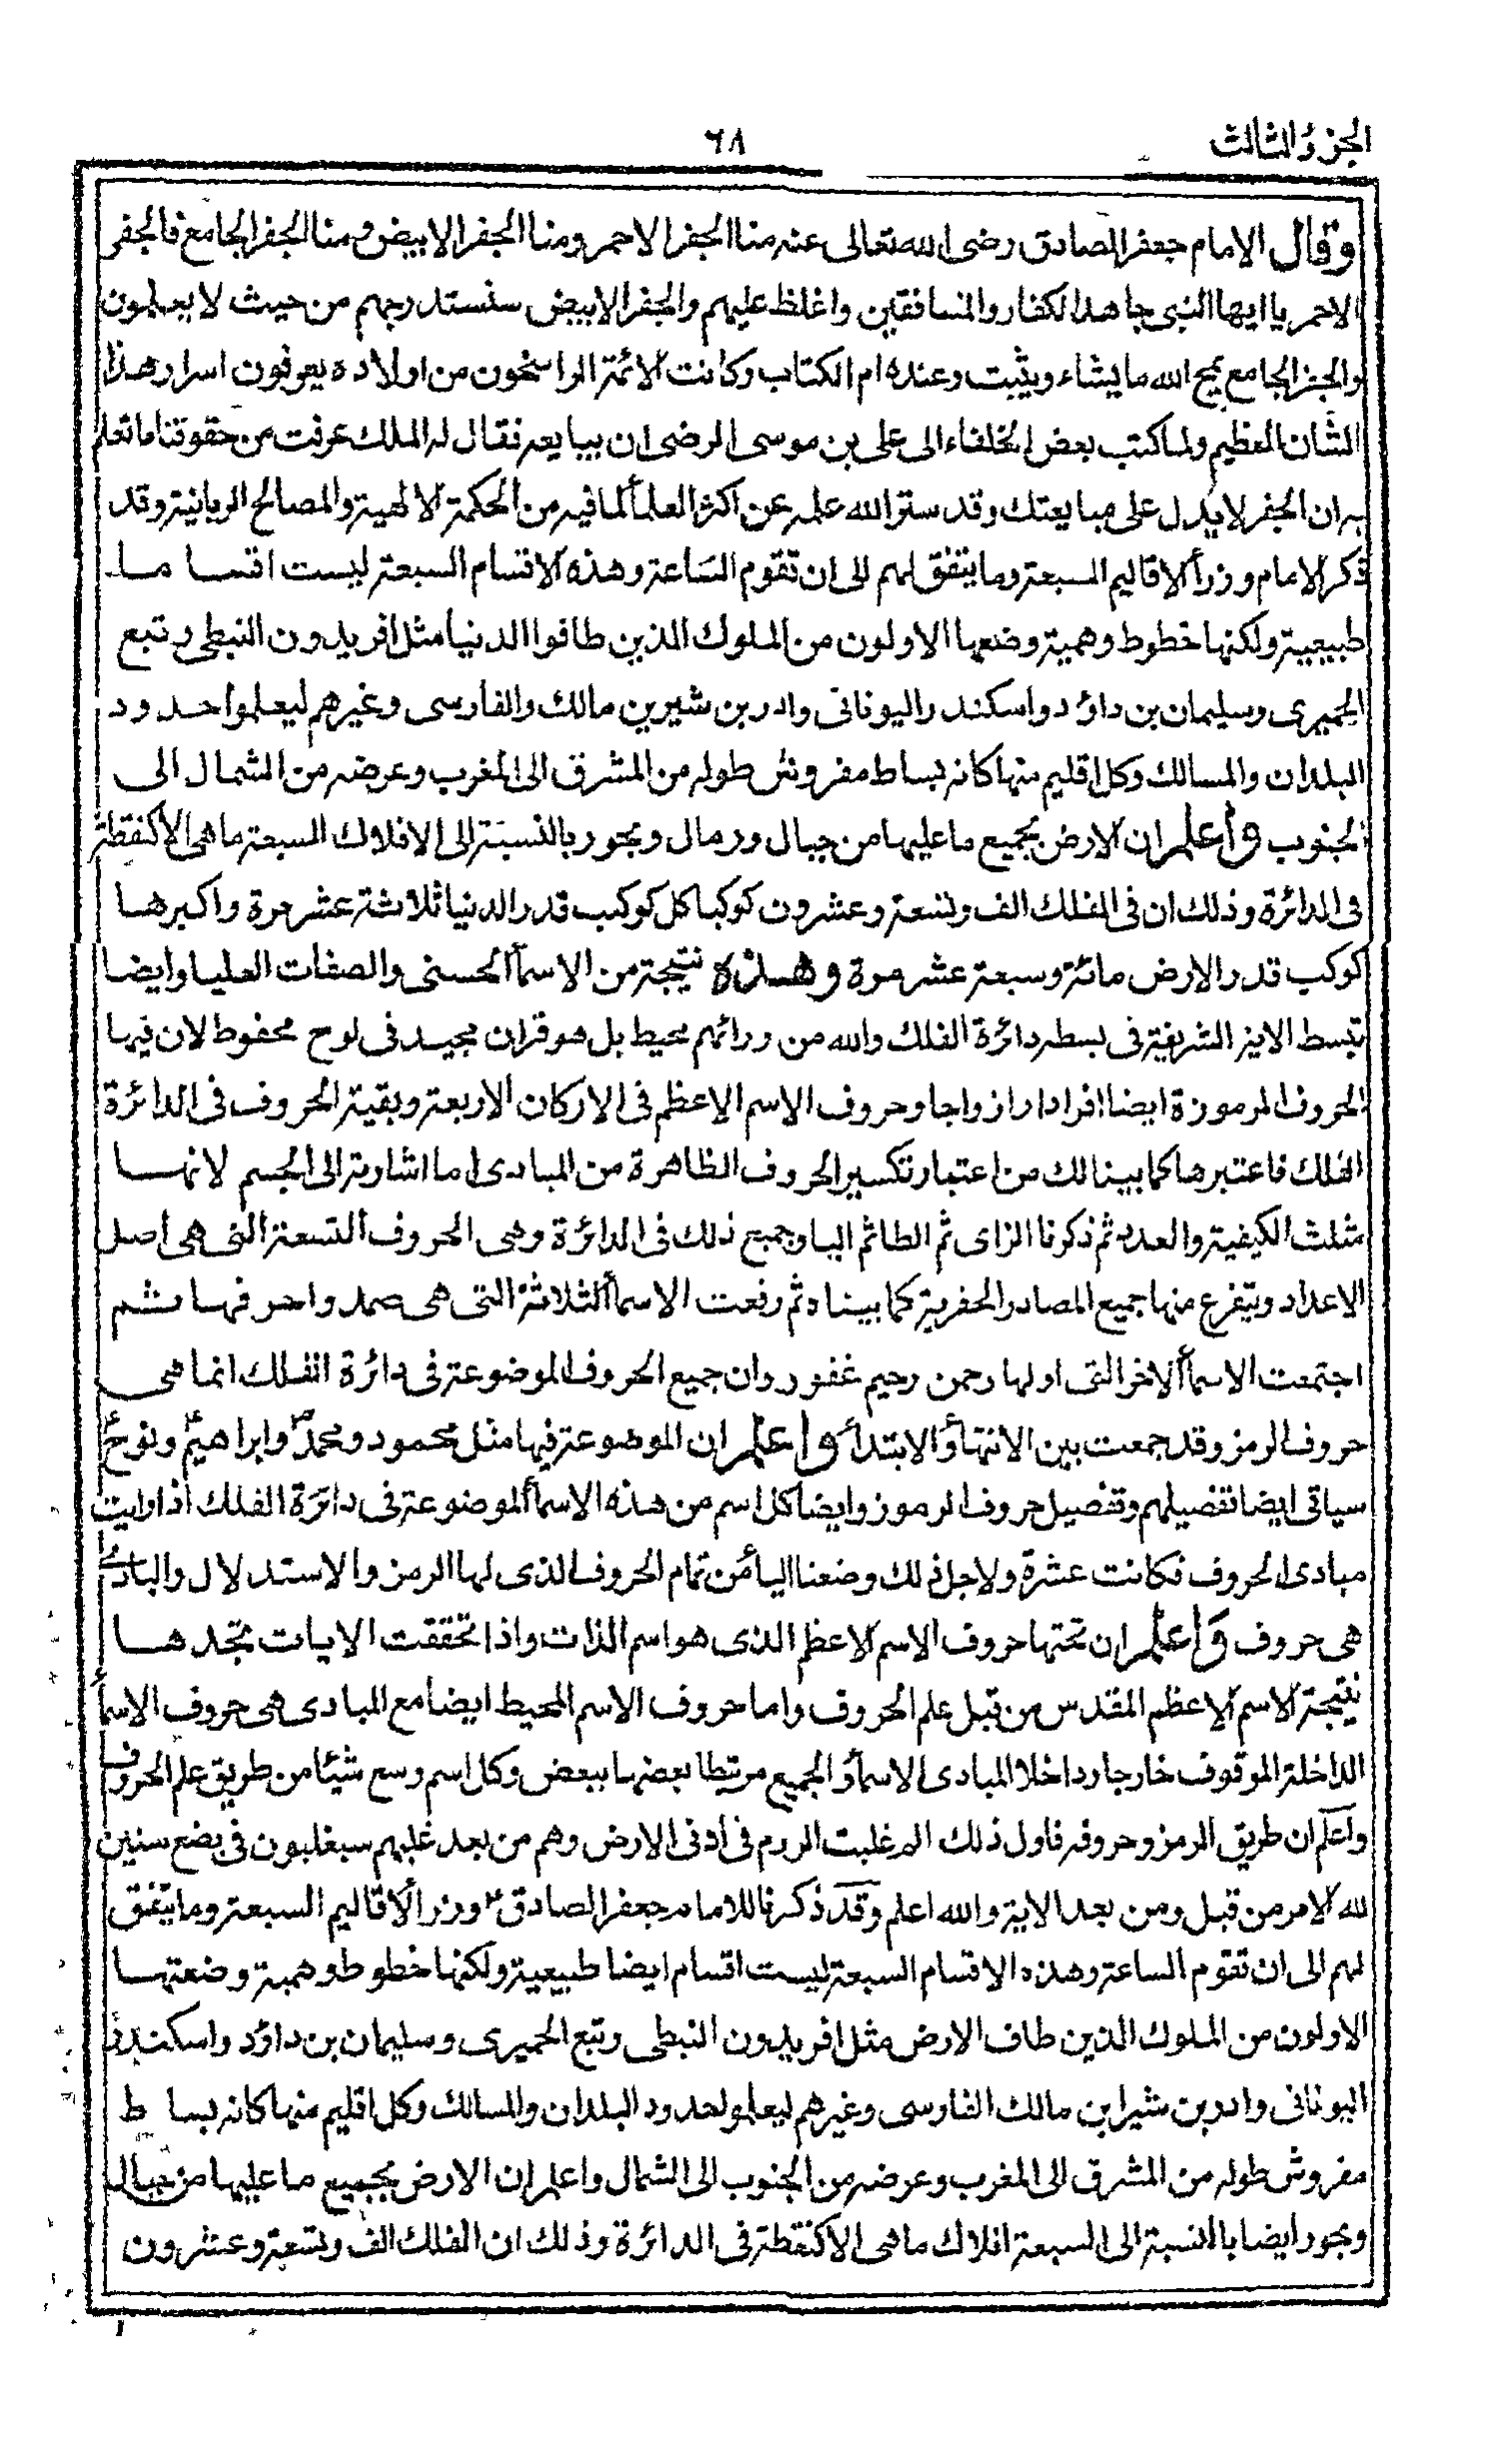 الجزء الثالث
٦٨
وقال الامام جعفر الصادق رضى الله تعالى عنه منا الجفر الاحمر ومنا الجفر الابيض ومنا الجفر الجامع فالجفر
الاحمر يا ايها النبى جاهد الكفار والمنافقين واغلظ عليهم والجفر الابيض سنستدرجهم من حيث لا يعلمون
والجفر الجامع يمح الله ما يشاء ويثبت وعنده ام الكتاب وكانت الائمة الراسخون من اولاده يعرفون اسرار هذا
الشان العظيم ولما كتب بعض الخلفاء الى على بن موسى الرضى ان يبايعه فقال له الملك عرفت من حقوقنا ما تعلم
به ان الجفر لا يدل على مبايعتك وقد ستر الله علمه عن اكثر العلمأ لما فيه من الحكمة الالهية والمصالح الربانية وقد
ذكر الامام وزرأ الاقاليم السبعة وما يتفق لهم الى ان تقوم الساعة وهذه الاقسام السبعة ليست اقسا ما
طبيعية ولكنها خطوط وهمية وضعها الاولون من الملوك الذين طافوا الدنيا مثل افريدون النبطى وتبع
الحميرى وسليمان بن داؤد واسكندر اليونانى وادر بن شيرين مالك والفارسى وغيرهم ليعلموا حدود
البلدان والمسالك وكل اقليم منها كانه بساط مفروش طوله من المشرق الى المغرب وعرضه من الشمال الى
الجنوب وأعلم ان الارض بجميع ما عليها من جبال ورمال وبحور بالنسبة الى الافلاك السبعة ما هى الا كنقطة
فى الدائرة وذلك ان فى الفلك الف وتسعة وعشرون كوكبا كل كوكب قدر الدنيا ثلاثة عشر مرة واكبرها
كوكب قدر الارض مائة وسبعة عشر مرة وهذه نتيجة من الاسمأ الحسنى والصفات العليا وايضا
تبسط الاية الشريفة فى بسطه دائرة الفلك والله من ورائهم محيط بل هو قران مجيد فى لوح محفوظ لان فيها
الحروف المرموزة ايضا افرادا وازواجا وحروف الاسم الاعظم فى الاركان الاربعة وبقية الحروف فى الدائرة
الفلك فاعتبرها كما بينا لك من اعتبار تكسير الحروف الظاهرة من المبادى اما اشارته الى الجسم لانها
مثلث الكيفية والعدد ثم ذكرنا الزاى ثم الطا ثم اليا وجميع ذلك فى الدائرة وهى الحروف التسعة التى هى أصل
الاعداد ويتفرع منها جميع المصادر الحفرية كما بيناه ثم رفعت الاسمأ الثلاثة التى هى صمد واحر فها ثم
اجتمعت الاسمأ الاخر التى اولها رحمن رحيم غفور وان جميع الحروف الموضوعة فى دائرة الفلك انما هى
حروف الرمز وقد جمعت بين الانتهأ والابتدأ واعلم ان الموضوعة فيها مثل محمود ومحمدؐ وابراهيمؑ ونوحؑ
سياتى ايضا تفصيلهم وتفصيل حروف الرموز وايضا كل اسم من هذه الاسمأ الموضوعة فى دائرة الفلك اذا رايت
مبادى الحروف فكانت عشرة ولاجل ذلك وضعنا اليأ من تمام الحروف الذى لها الرمز والاستدلال والبادئ
هى حروف وأعلم ان تحتها حروف الاسم الاعظم الذى هو اسم الذات واذا تحققت الايات تجدها
نتيجة الاسم الاعظم المقدس من قبل علم الحروف واما حروف الاسم المحيط ايضا مع المبادى هى حروف الاسمأ
الداخلة الموقوف خارجا وداخلا المبادى الاسمأ والجميع مرتبطا بعضها ببعض وكل اسم وسع شيئا من طريق علم الحروف
واعلم ان طريق الرمز وحروفه فاول ذلك الم غلبت الروم فى أدنى الارض وهم من بعد غلبهم سيغلبون فى بضع سنين
لله الامر من قبل ومن بعد الاية والله اعلم وقد ذكرنا للامام جعفر الصادقؑ وزرأ الاقاليم السبعة وما يتفق
لهم الى ان تقوم الساعة وهذه الاقسام السبعة ليست اقسام ايضا طبيعية ولكنها خطوط وهمية وضعتها
الاولون من الملوك الذين طاف الارض مثل افريدون النبطى وتبع الحميرى وسليمان بن داؤد واسكندر
اليونانى وادر بن شيرا بن مالك الفارسى وغيرهم ليعلموا حدود البلدان والمسالك وكل اقليم منها كانه بساط
مفروش طوله من المشرق الى المغرب وعرضه من الجنوب الى الشمال واعلم ان الارض بجميع ما عليها من جبال
وبحور ايضا بالنسبة الى السبعة افلاك ما هى الا كنقطة فى الدائرة وذلك ان الفلك الف وتسعة وعشرون